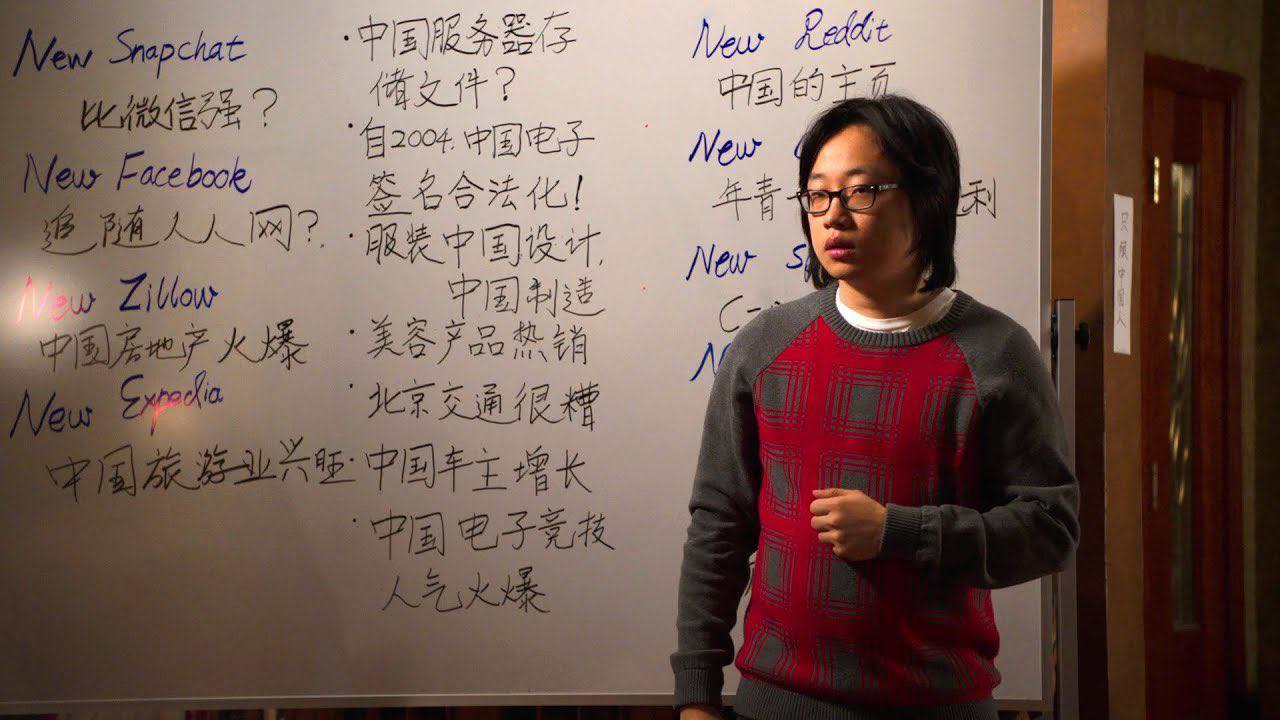 New Snapchat
比微信强？
New Facebook
追随人人网？
New Zillow
中国房地产火爆
New Expedia
中国旅游业兴旺
·中国服务器存
储文件？
·自2004.中国电子
签名合法化！
·服装中国设计，
中国制造
·美容产品热销
·北京交通很糟
·中国车主增长
·中国电子竞技
人气火爆
New Reddit
中国的主页
New
年青 利
New
C-
只限中国人